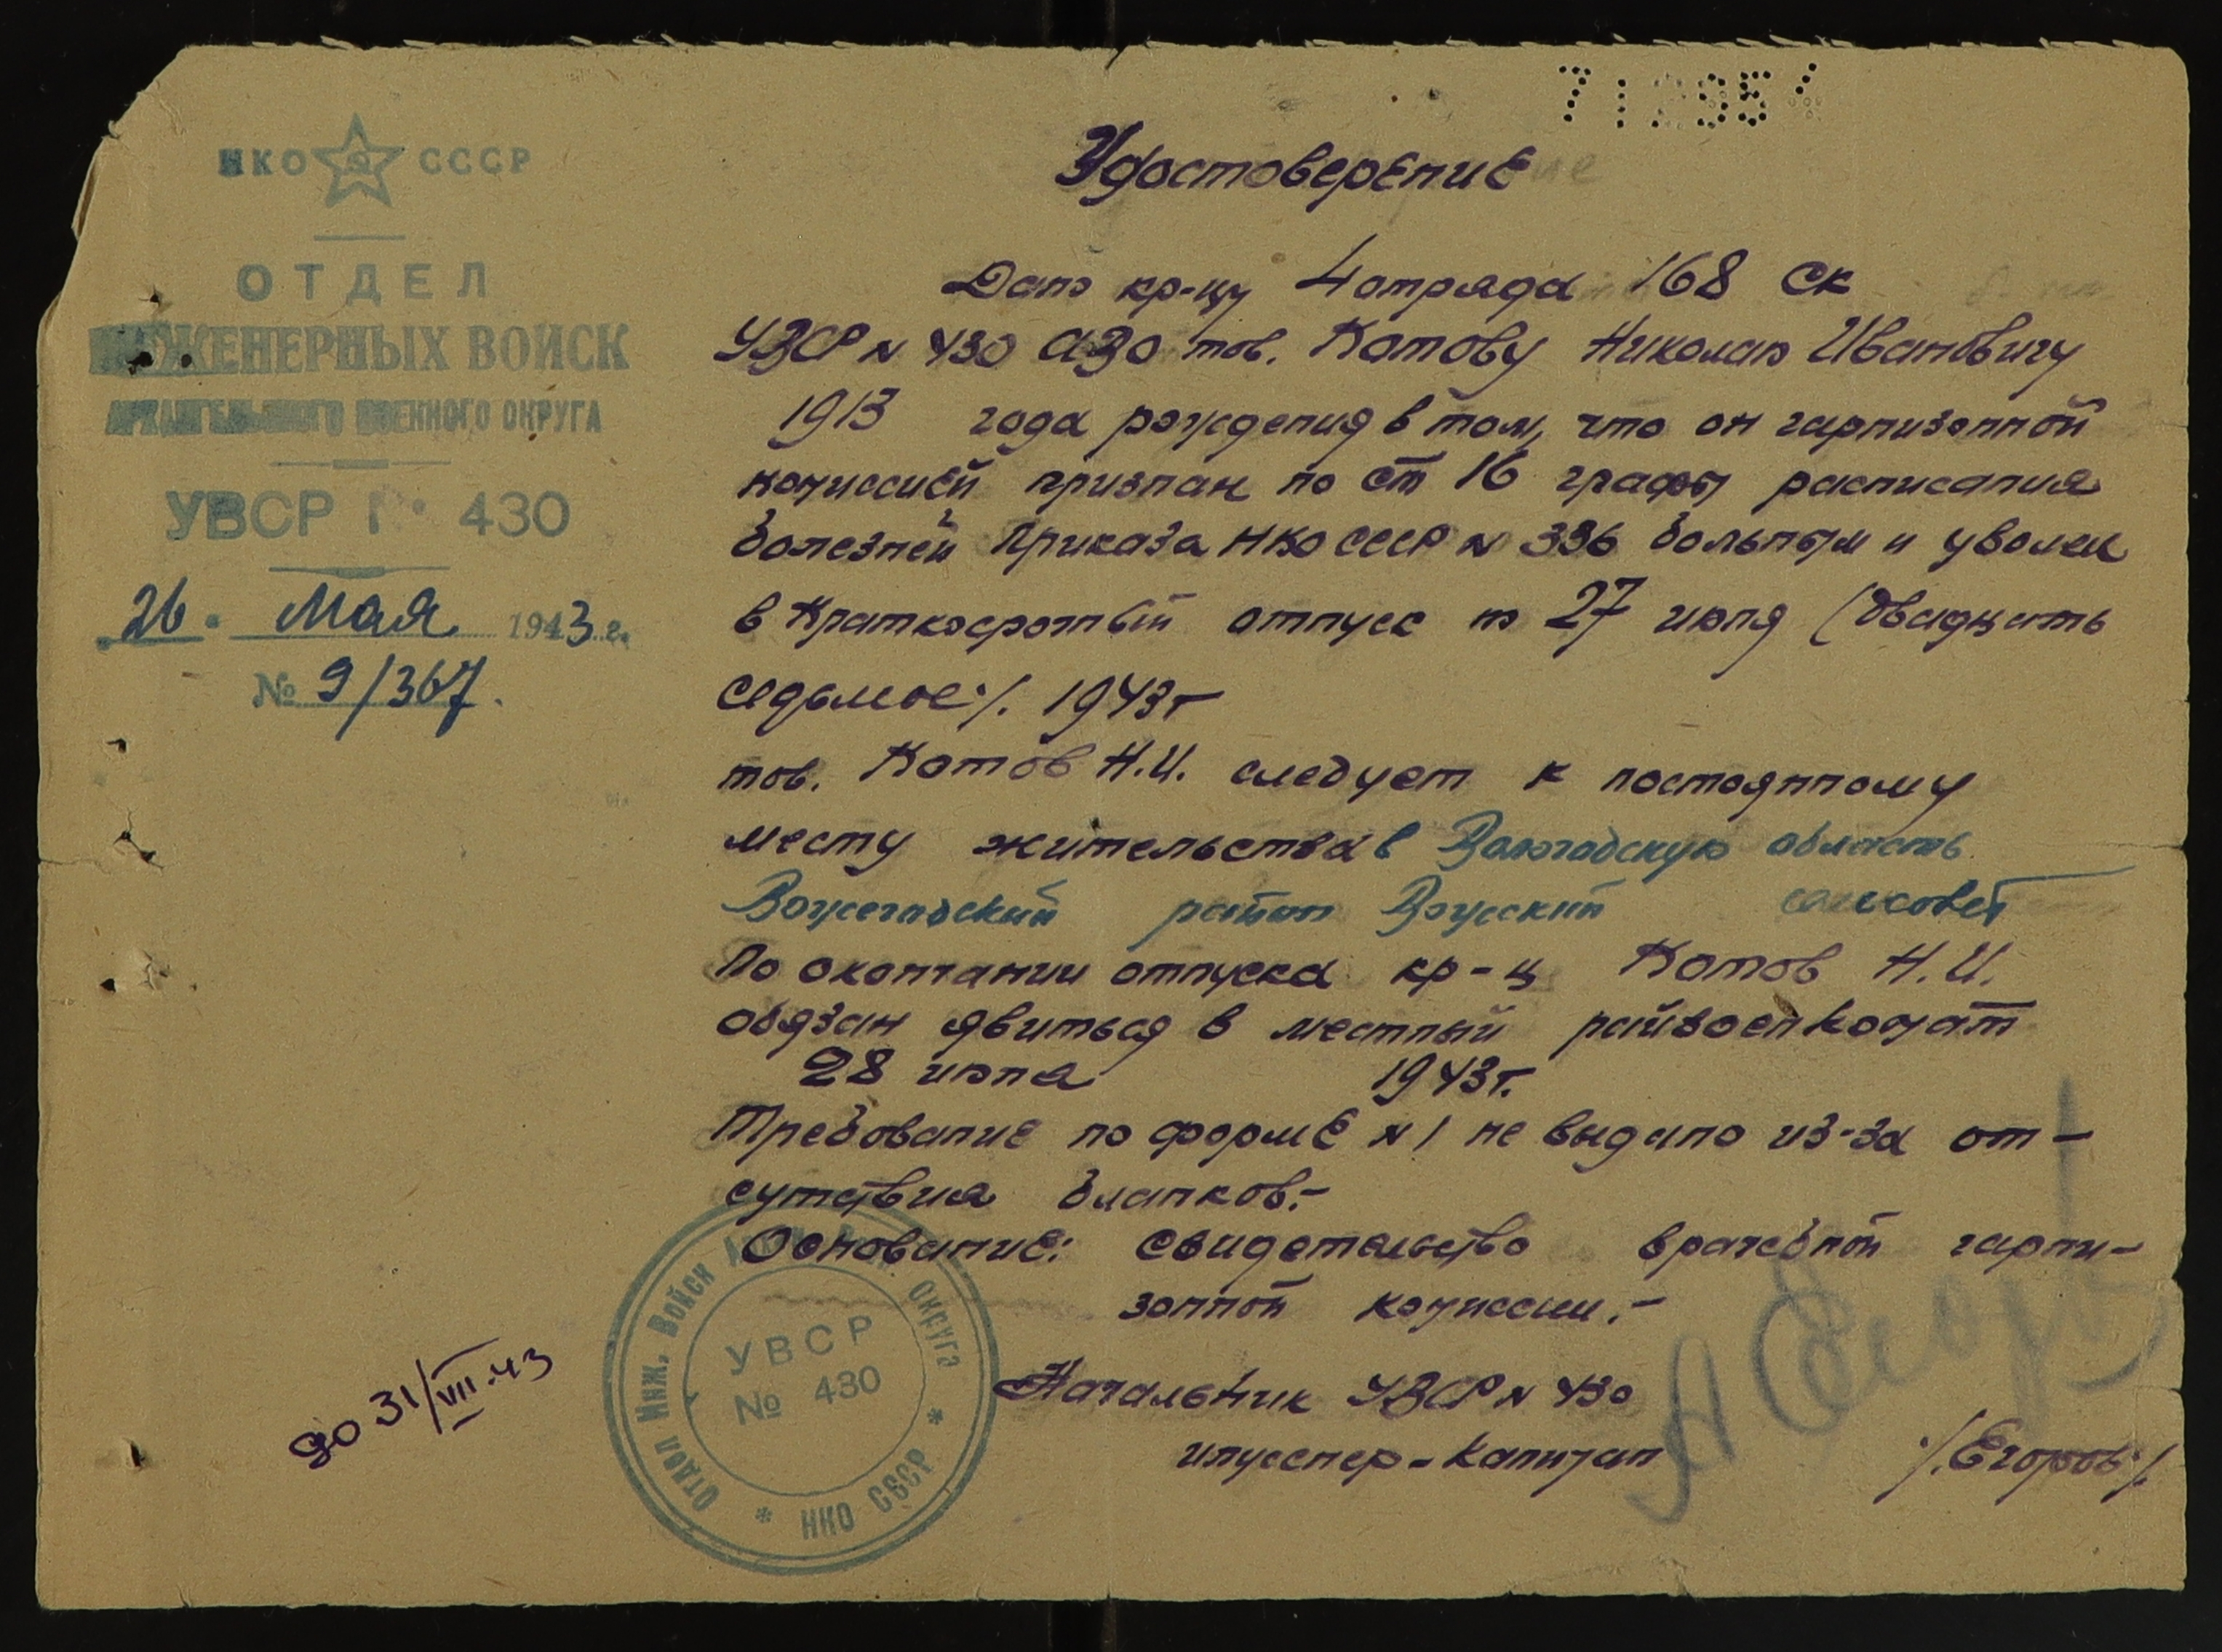 НКО СССР
ОТДЕЛ
ИНЖЕНЕРНЫХ ВОЙСК
АРХАНГЕЛЬСКОГО ВОЕННОГО ОКРУГА
УВСР № 430
26 Мая 1943 г.
№ 9/367.
Удостоверение
Дано кр-цу 4 отряда 168 СК
УВСР N 430 АВО тов. Котову Николаю Ивановичу
1913 года рождения в том, что он гарнизонной
комиссией признан по ст 16 графы расписания
болезней Приказа НКО СССР N 336 больным и уволен
в краткосрочный отпуск по 27 июля (двадцать
седьмое/. 1943г
тов. Котов Н.И. следует к постоянному
месту жительства в Вологодскую область
Вожегодский район сельсовет
По окончании отпуска кр-ц Котов Н.И.
обязан явиться в местный райвоенкомат
28 июля 1943г.
Требование по форме N 1 не выдано из-за от-
сутствия бланков.-
Основание: свидетельство врачебной гарни-
зонной комиссии.-
Начальник УВСР N 430
инженер-капитан /.Егоров/.
А Егоров
ОТДЕЛ ИНЖ. ВОЙСК ОКРУГА * НКО СССР *
УВСР
№ 430
до 31/VIII-43